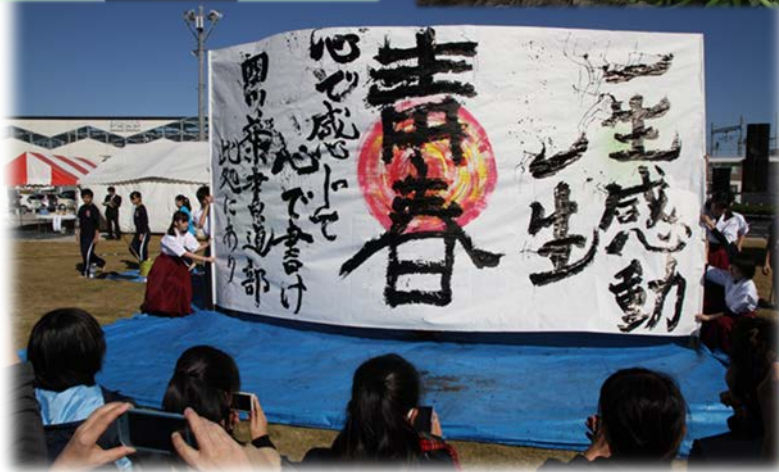 一生感動
一生
青春
心で感じて
心で書け
書道部
此処にあり